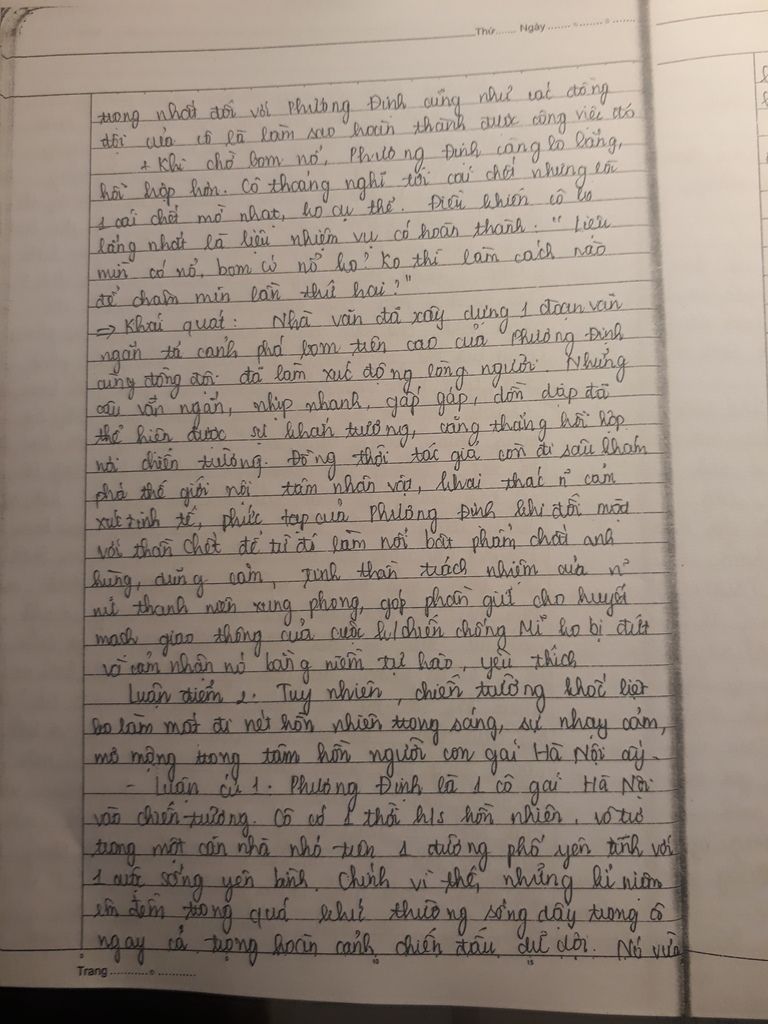 Thứ...... Ngày ....... ° ....... ° .......
trọng nhất đối với Phương Định cũng như các đồng
đội của cô là làm sao hoàn thành được công việc đó
+ Khi chờ bom nổ, Phương Định càng lo lắng,
hồi hộp hơn. Cô thoáng nghĩ tới cái chết nhưng
1 cái chết mờ nhạt, ko cụ thể. Điều khiến cô lo
lắng nhất là liệu nhiệm vụ có hoàn thành: "Liệu
mìn có nổ, bom có nổ ko? Ko thì làm cách nào
để châm mìn lần thứ hai?"
=> Khái quát: Nhà văn đã xây dựng 1 đoạn văn
ngắn tả cảnh phá bom trên cao của Phương Định
cùng đồng đội đã làm xúc động lòng người. Những
câu văn ngắn, nhịp nhanh, gấp gáp, dồn dập đã
thể hiện được sự khẩn trương, căng thẳng hồi hộp
nơi chiến trường. Đồng thời tác giả còn đi sâu khám
phá thế giới nội tâm nhân vật, khai thác n~ cảm
xúc tinh tế, phức tạp của Phương Định khi đối mặt
với thần chết để từ đó làm nổi bật phẩm chất anh
hùng, dũng cảm, tinh thần trách nhiệm của n~
nữ thanh niên xung phong, góp phần giữ cho huyết
mạch giao thông của cuộc k/chiến chống Mĩ ko bị đứt
và cảm nhận nó bằng niềm tự hào, yêu thích
Luận điểm 2. Tuy nhiên, chiến trường khốc liệt
ko làm mất đi nét hồn nhiên trong sáng, sự nhạy cảm,
mơ mộng trong tâm hồn người con gái Hà Nội ấy.
- Luận cứ 1. Phương Định là 1 cô gái Hà Nội
vào chiến trường. Cô có 1 thời h/s hồn nhiên, vô tư
trong một căn nhà nhỏ trên 1 đường phố yên tĩnh với
1 cuộc sống yên bình. Chính vì thế, những kỉ niệm
êm đềm trong quá khứ thường sống dậy trong cô
ngay cả trong hoàn cảnh chiến đấu dữ dội. Nó vừa
Trang ...........° ...........